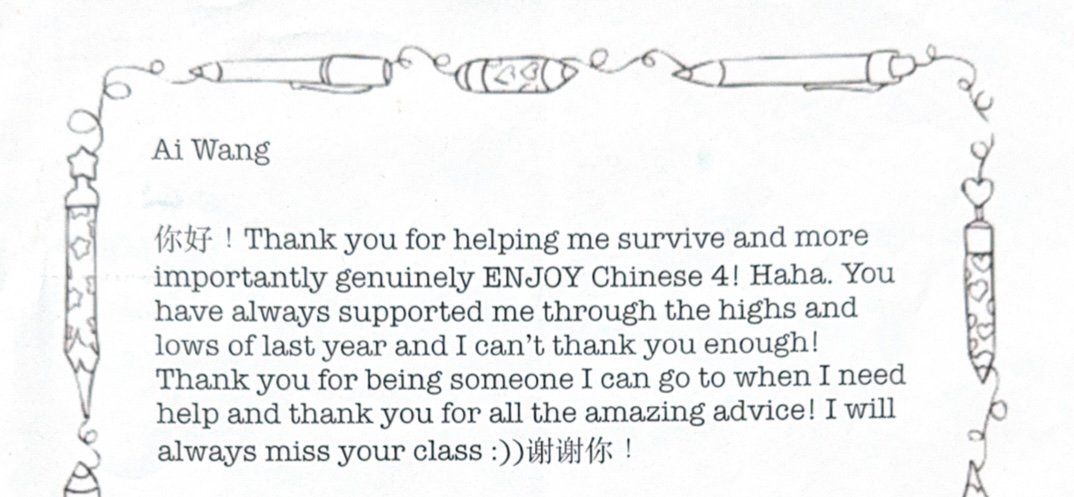 Ai Wang
你好！Thank you for helping me survive and more
importantly genuinely ENJOY Chinese 4! Haha. You
have always supported me through the highs and
lows of last year and I can't thank you enough!
Thank you for being someone I can go to when I need
help and thank you for all the amazing advice! I will
always miss your class :))谢谢你！